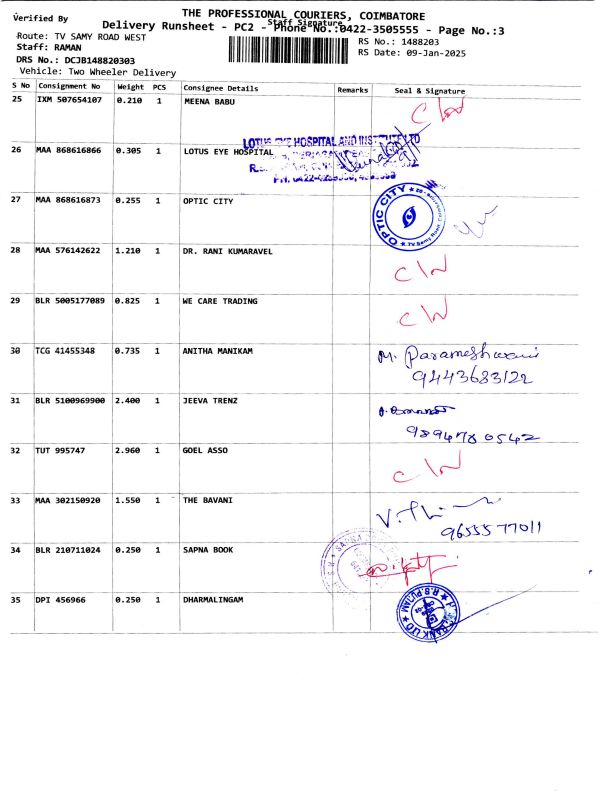 THE PROFESSIONAL COURIERS, COIMBATORE
Verified By
Staff Signature
Delivery Runsheet - PC2 - Phone No.:0422-3505555 - Page No.:3
Route: TV SAMY ROAD WEST
RS No.: 1488203
Staff: RAMAN
RS Date: 09-Jan-2025
DRS No.: DCJB148820303
Vehicle: Two Wheeler Delivery
S No Consignment No Weight PCS Consignee Details Remarks Seal & Signature
25 IXM 507654107 0.210 1 MEENA BABU
26 MAA 868616866 0.305 1 LOTUS EYE HOSPITAL
LOTUS EYE HOSPITAL AND INSTITUTE LTD
27 MAA 868616873 0.255 1 OPTIC CITY
OPTIC CITY
28 MAA 576142622 1.210 1 DR. RANI KUMARAVEL
29 BLR 5005177089 0.825 1 WE CARE TRADING
30 TCG 41455348 0.735 1 ANITHA MANIKAM
M. Parameshwari
9443683122
31 BLR 5100969900 2.400 1 JEEVA TRENZ
9894780542
32 TUT 995747 2.960 1 GOEL ASSO
33 MAA 302150920 1.550 1 THE BAVANI
9655577011
34 BLR 210711024 0.250 1 SAPNA BOOK
SAPNA
35 DPI 456966 0.250 1 DHARMALINGAM
R.S.PURAM